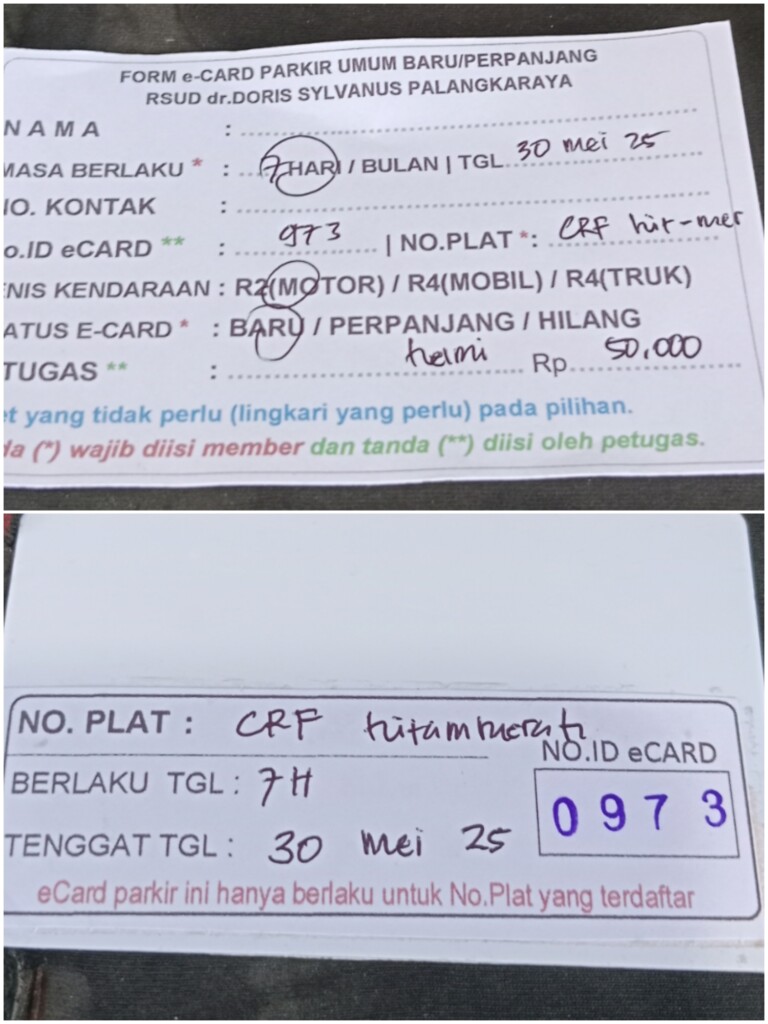 FORM e-CARD PARKIR UMUM BARU/PERPANJANG
RSUD dr.DORIS SYLVANUS PALANGKARAYA
NAMA :
MASA BERLAKU * : 7 HARI / BULAN | TGL 30 mei 25
NO. KONTAK :
o.ID eCARD ** : 973 | NO.PLAT *: CRF hit-mer
NIS KENDARAAN : R2(MOTOR) / R4(MOBIL) / R4(TRUK)
ATUS E-CARD * : BARU / PERPANJANG / HILANG
TUGAS ** : helmi Rp 50.000
et yang tidak perlu (lingkari yang perlu) pada pilihan.
da (*) wajib diisi member dan tanda (**) diisi oleh petugas.
NO. PLAT : CRF hitam merah
NO.ID eCARD
BERLAKU TGL : 7 H
0973
TENGGAT TGL : 30 mei 25
eCard parkir ini hanya berlaku untuk No.Plat yang terdaftar